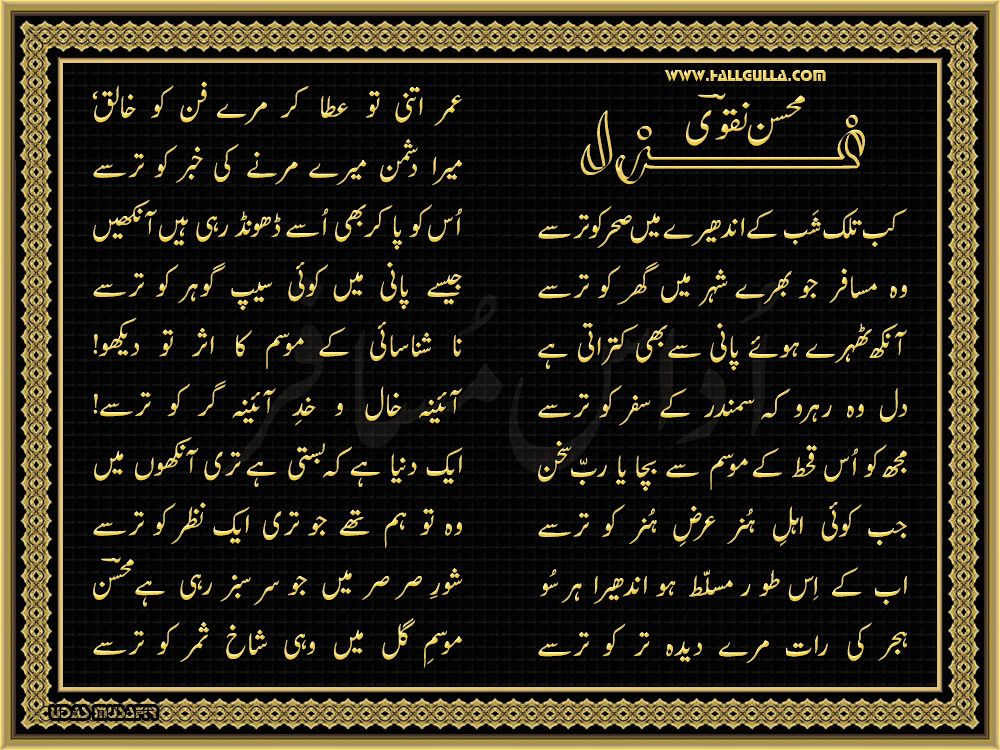 WWW.HALLGULLA.COM
محسن نقوی
غزل
کب تلک شَب کے اندھیرے میں سحر کو ترسے
وہ مسافر جو بھرے شہر میں گھر کو ترسے
آنکھ ٹھہرے ہوئے پانی سے بھی کتراتی ہے
دل وہ رہرو کہ سمندر کے سفر کو ترسے
مجھ کو اُس قحط کے موسم سے بچا یا ربّ سخن
جب کوئی اہلِ ہُنر عرضِ ہُنر کو ترسے
اب کے اِس طور مسلّط ہو اندھیرا ہر سُو
ہجر کی رات مرے دیدہ تر کو ترسے
عمر اتنی تو عطا کر مرے فن کو خالق؛
میرا دشمن میرے مرنے کی خبر کو ترسے
اُس کو پا کر بھی اُسے ڈھونڈ رہی ہیں آنکھیں
جیسے پانی میں کوئی سیپ گوہر کو ترسے
نا شناسائی کے موسم کا اثر تو دیکھو!
آئینہ خال و خدِ آئینہ گر کو ترسے!
ایک دنیا ہے کہ بستی ہے تری آنکھوں میں
وہ تو ہم تھے جو تری ایک نظر کو ترسے
شورِ صر صر میں جو سر سبز رہی ہے محسن
موسمِ گل میں وہی شاخ ثمر کو ترسے
اُداس مُسافر
UDAS MUSAFIR